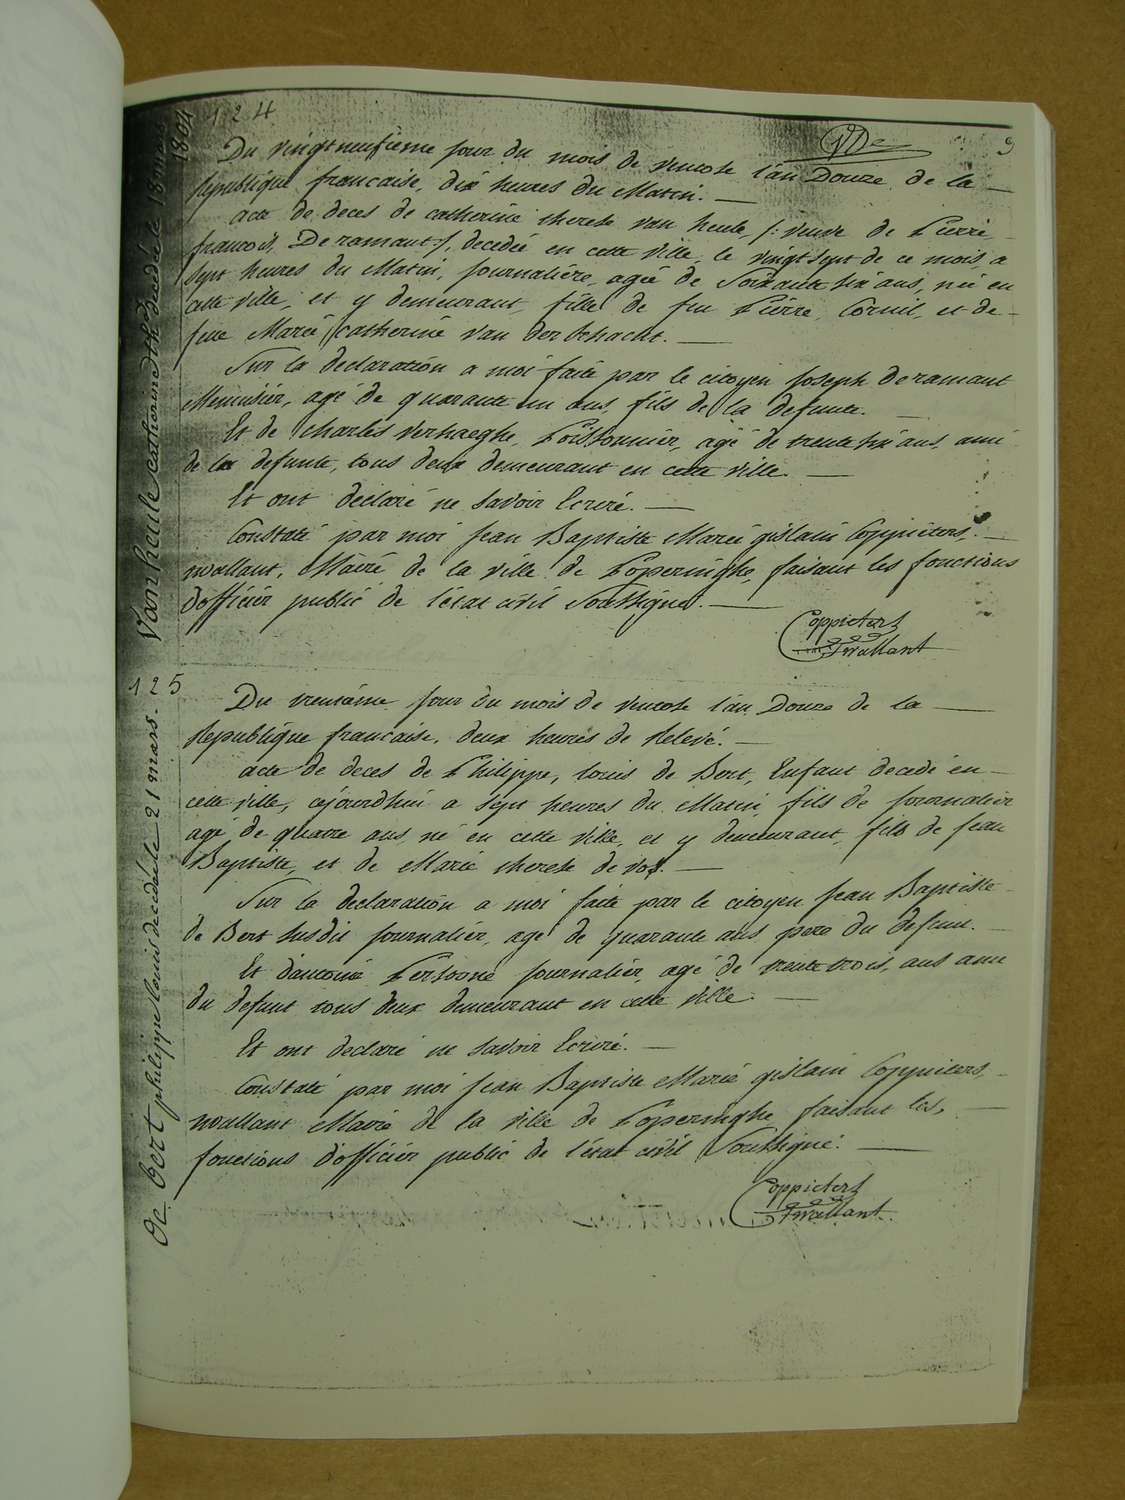 124
9
Vanheule catherine th decede le 18 mars 1804
Du vingtneufieme jour du mois de ventose l'an Douze de la
Republique francaise, dix heures du Matin.
acte de deces de catherine therese van heule, /: veuve de Pierre
francois, Deramaut :/, decedée en cette ville, le vingtsept de ce mois, a
sept heures du Matin, journaliere, agée de Soixante six ans, née en
cette ville, et y demeurant, fille de feu Pierre, Cornil, et de
feue Marie catherine van der Schacht.
Sur la declaration a moi faite par le citoyen Joseph Deramaut
Menuisier, agé de quarante un ans, fils de la defunte.
Et de Charles Verhaeghe, Poissonnier, agé de trente six ans, ami
de la defunte, tous deux demeurant en cette ville.
Et ont déclaré ne savoir Ecrire.
Constaté par moi Jean Baptiste Marie gislain Coppieters,
Mairé de la ville de Poperinghe, faisant les fonctions
d'officier public de l'état civil Soussigné.
Coppieters
125
De bert philippe louis decede le 21 mars.
Du trentieme jour du mois de ventose l'an Douze de la
Republique francaise, deux heures de Relevé.
acte de deces de Philippe, louis de Bert, Enfant decedé en
cette ville, cejourdhui a sept heures du Matin, fils de journalier
agé de quatre ans, né en cette ville, et y demeurant, fils de Jean
Baptiste, et de Marie therese de vos.
Sur la declaration a moi faite par le citoyen Jean Baptiste
de Bert susdit journalier, agé de quarante ans père du defunt.
Et d'antoine Persoone journalier, agé de trente trois, ans ami
du defunt tous deux demeurant en cette ville.
Et ont declaré ne savoir Ecrire.
Constaté par moi Jean Baptiste Marie gislain Coppieters,
Mairé de la ville de Poperinghe faisant les,
fonctions d'officier public de l'état civil Soussigné.
Coppieters